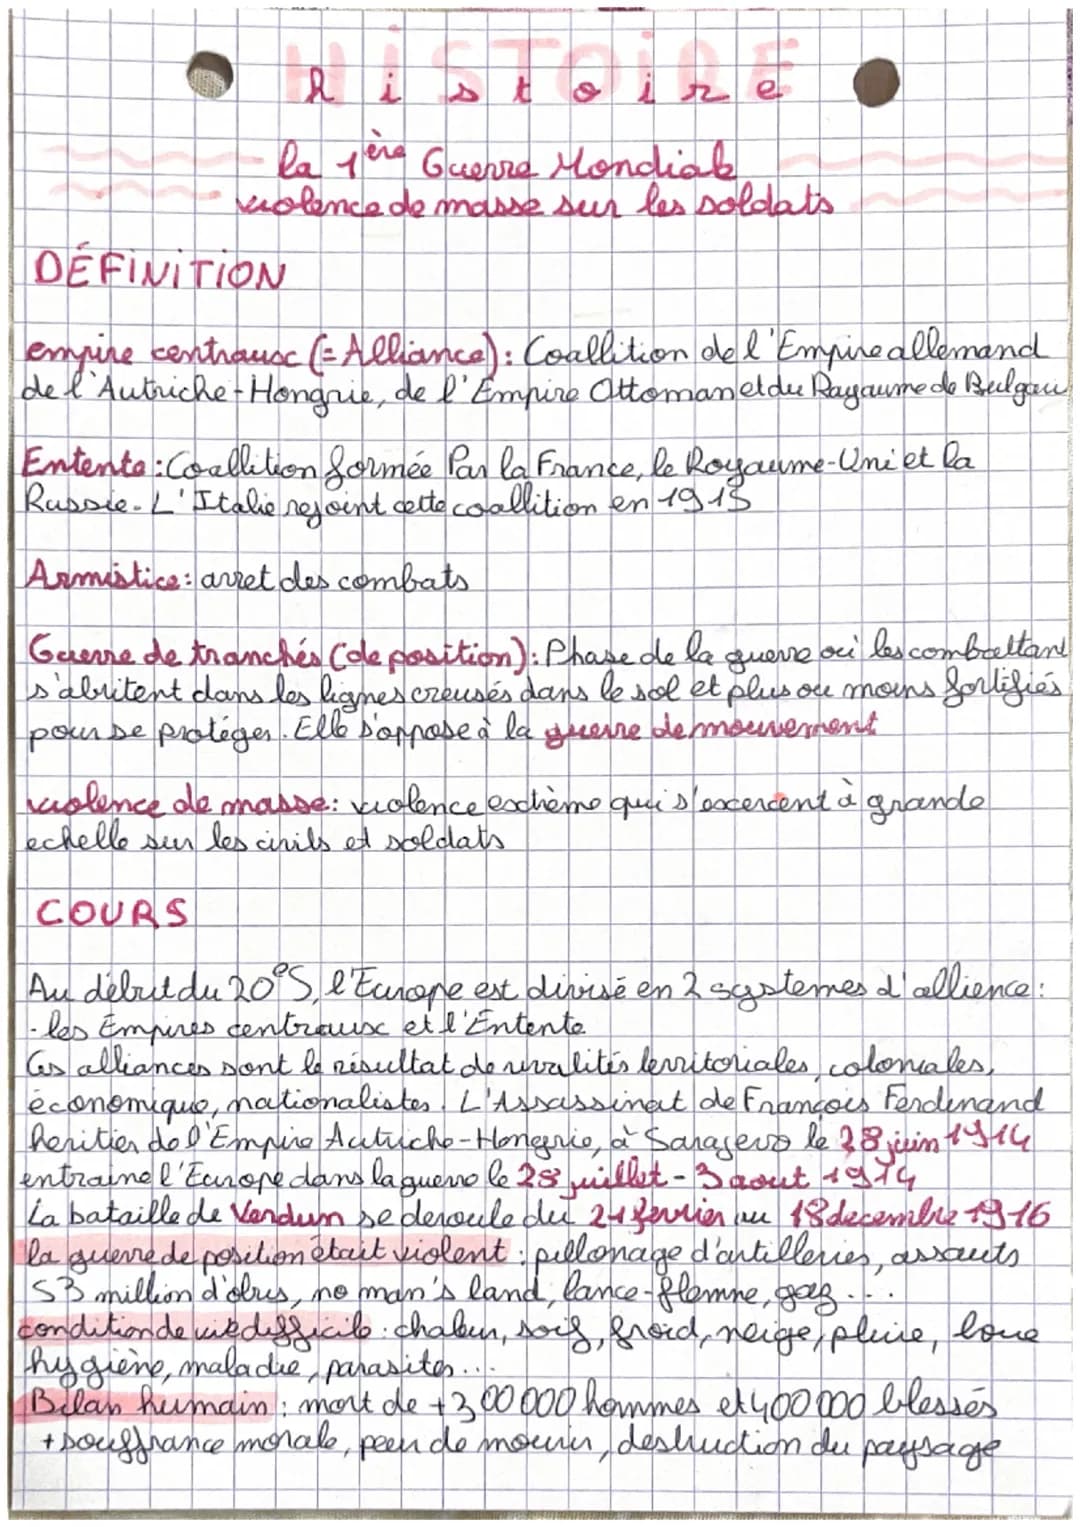 HiSTOiRE
histoire
la 1ère Guerre Mondiale
violence de masse sur les soldats
DÉFiNiTiON
empire centraux (= Alliance): Coallition de l'Empire allemand
de l'Autriche-Hongrie, de l'Empire Ottoman et du Rayaume de Bulgari
Entente: Coallition formée Par la France, le Royaume-Uni et la
Russie. L'Italie rejoint cette coallition en 1915
Armistice: arret des combats
Guerre de tranchés (de position): Phase de la guerre où les combattant
s'abritent dans les lignes creusés dans le sol et plus ou moins fortifiés
pour se protéger. Elle s'oppose à la guerre de mouvement
violence de masse: violence extrème qui s'excercent à grande
echelle sur les civils et soldats
COURS
Au début du 20eS, l'Europe est divisé en 2 systemes d'allience:
- les Empires centraux et l'Entente
Ces alliances sont le résultat de rivalités territoriales, coloniales,
économique, nationalistes. L'Assassinat de François Ferdinand
heritier de l'Empire Autriche-Hongrie, à Sarajevo le 28 juin 1914
entraine l'Europe dans la guerre le 28 juillet - 3 aout 1914
La bataille de Verdun se deroule du 21 fevrier au 18 decembre 1916
la guerre de position était violent: pillonage d'artilleries, assauts
53 million d'obus, no man's land, lance-flamme, gaz...
condition de vie difficile: chaleur, soif, froid, neige, pluie, boue
hygiène, maladie, parasites...
Bilan humain: mort de +300 000 hommes et 400 000 blessés
+ souffrance morale, peur de mourir, destruction du paysage